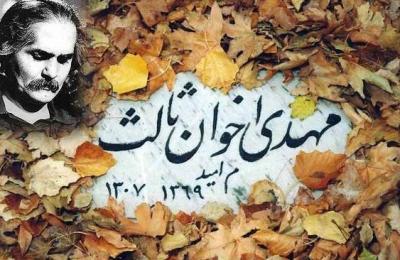 مهدی اخوان ثالث
م امید
۱۳۰۷ ۱۳۶۹